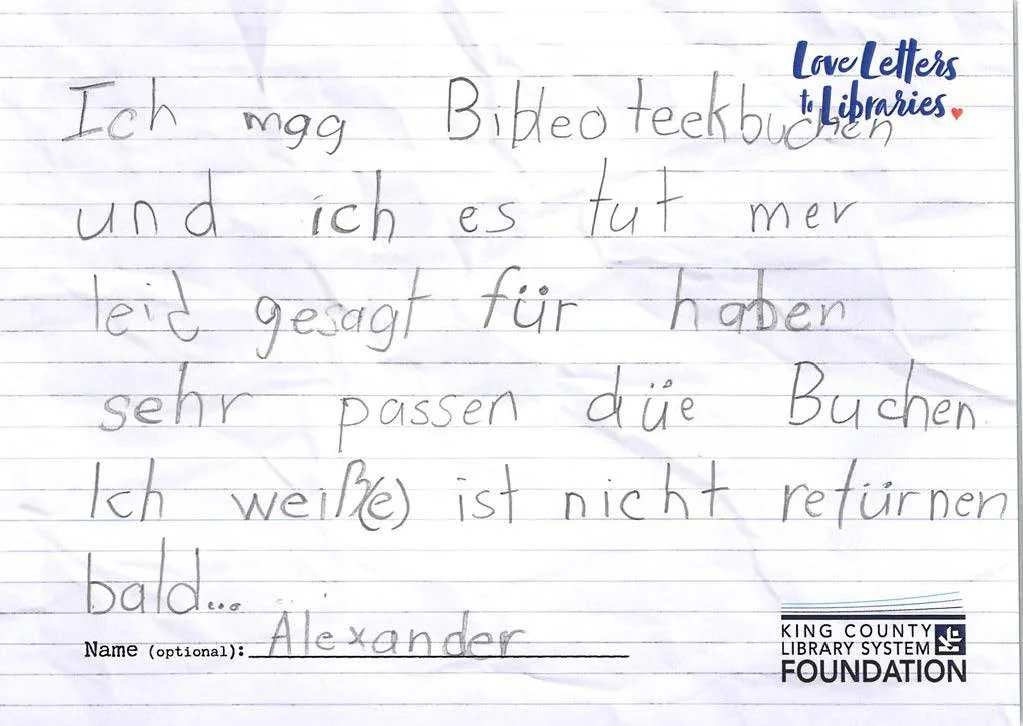 Love Letters
to Libraries
Ich mag Bibleoteekbuchen
und ich es tut mer
leid gesagt für haben
sehr passen düe Buchen
Ich weiß(e) ist nicht retürnen
bald...
Name (optional): Alexander
KING COUNTY
LIBRARY SYSTEM
FOUNDATION